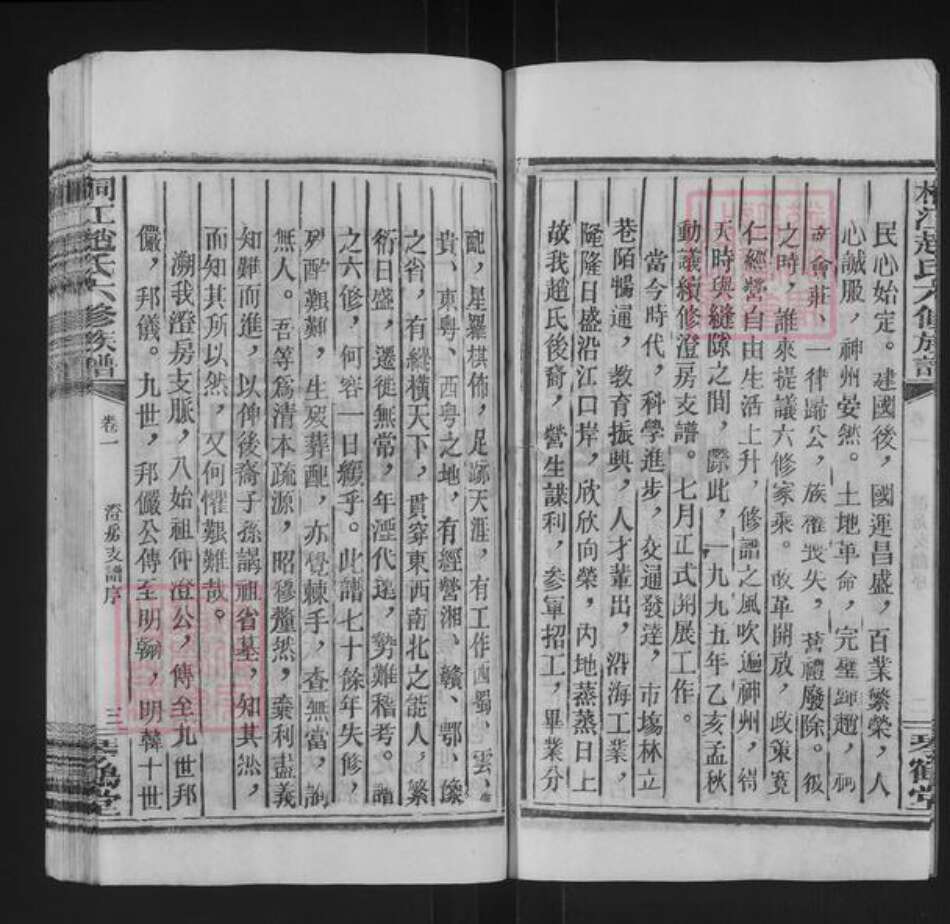 民心始定。建國後，國運昌盛，百業繁榮，人
心誠服，神州晏然。土地革命，完璧歸趙，祠
會莊、一律歸公，族權喪失，舊禮廢除。後
之時，誰來提議六修家乘。改革開放，政策寬
仁，經營自由生活上升，修譜之風吹遍神州，得
天時與縫隙之間，際此，一九九五年乙亥孟秋
動議續修澄房支譜。七月正式開展工作。
當今時代，科學進步，交通發達，市塲林立
巷陌暢通，教育振興，人才輩出，沿海工業，
隆隆日盛沿江口岸，欣欣向榮，內地蒸蒸日上
故我趙氏後裔，營生謀利，參軍招工，畢業分
琴鶴堂
配，星羅棋佈，足跡天涯，有工作西蜀、雲、
貴、東粵、西粵之地，有經營湘、贛、鄂、
之省，有縱橫天下，貫穿東西南北之能人，繁
衍日盛，遷徙無常，年湮代遠，勢難稽考。譜
之六修，何容一日緩乎。此譜七十餘年失修，
酷艱難，生歿葬配，亦覺棘手，查無當，詢
無人。吾等爲清本疏源，昭穆釐然，秉利盡義
知難而進，以俾後裔子孫講祖省墓，知其然，
而知其所以然，又何懼艱難哉。
溯我澄房支脈，八始祖仲澄公，傳至九世邦
儼，邦儀。九世，邦儼公傳至明翰，明韓十世
桐江趙氏六修族譜
卷一
澄房支譜序
三
琴鶴堂